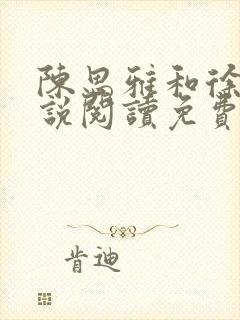 陳思雅和徐
說閱讀免費
肯迪